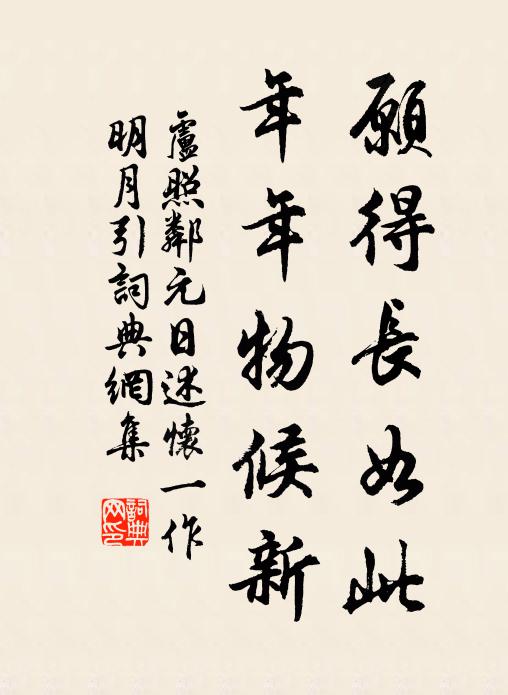 願得長如此
年年物候新
盧照鄰元日述懷一作
明月引詞典網集
詞典
网印